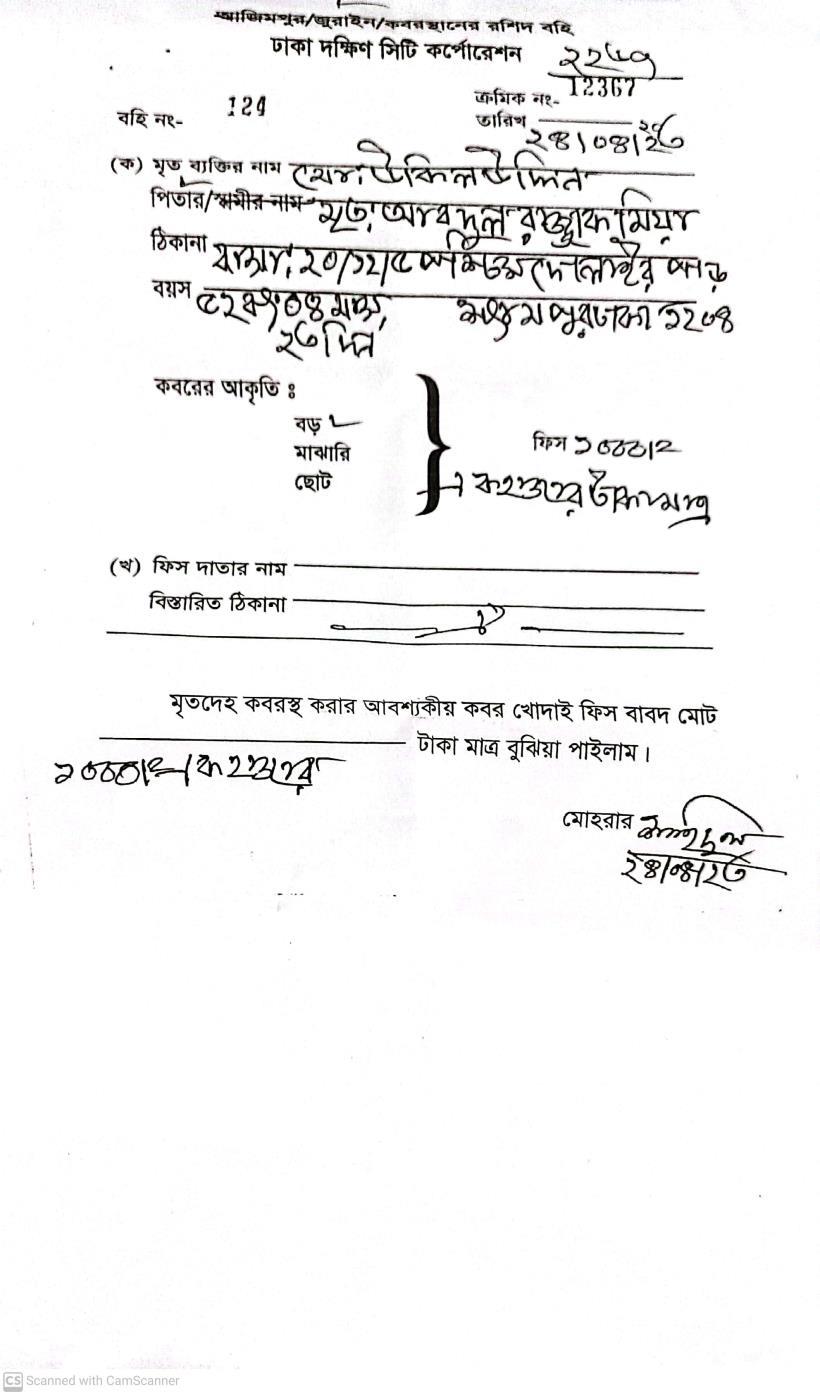 আজিমপুর/জুরাইন/কবরস্থানের রশিদ বহি
ঢাকা দক্ষিণ সিটি কর্পোরেশন
ক্রমিক নং- 12367
বহি নং- 124
তারিখ ২৪|০৪|২৩
(ক) মৃত ব্যক্তির নাম মোঃ উকিল উদ্দিন
পিতার/স্বামীর নাম মৃত, আবদুল রজ্জাক মিয়া
ঠিকানা বাসা, ২০/১২/৫ পশ্চিম দোলাইর পাড়
বয়স ৫২ ০৪ মাস, ঢাকা ১২০৪
২৩ দিন
কবরের আকৃতি ঃ
বড়
মাঝারি
ছোট
ফিস ১০০০|২
এক হাজার টাকা মাত্র
(খ) ফিস দাতার নাম
বিস্তারিত ঠিকানা
মৃতদেহ কবরস্থ করার আবশ্যকীয় কবর খোদাই ফিস বাবদ মোট
টাকা মাত্র বুঝিয়া পাইলাম।
১০০০|= এক হাজার
মোহরার
২৪|০৪|২৩
CS Scanned with CamScanner